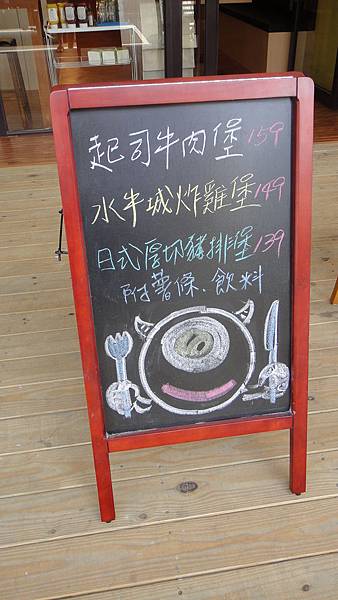 起司牛肉堡 159
水牛城炸雞堡 149
日式厚切豬排堡 139
附薯條、飲料